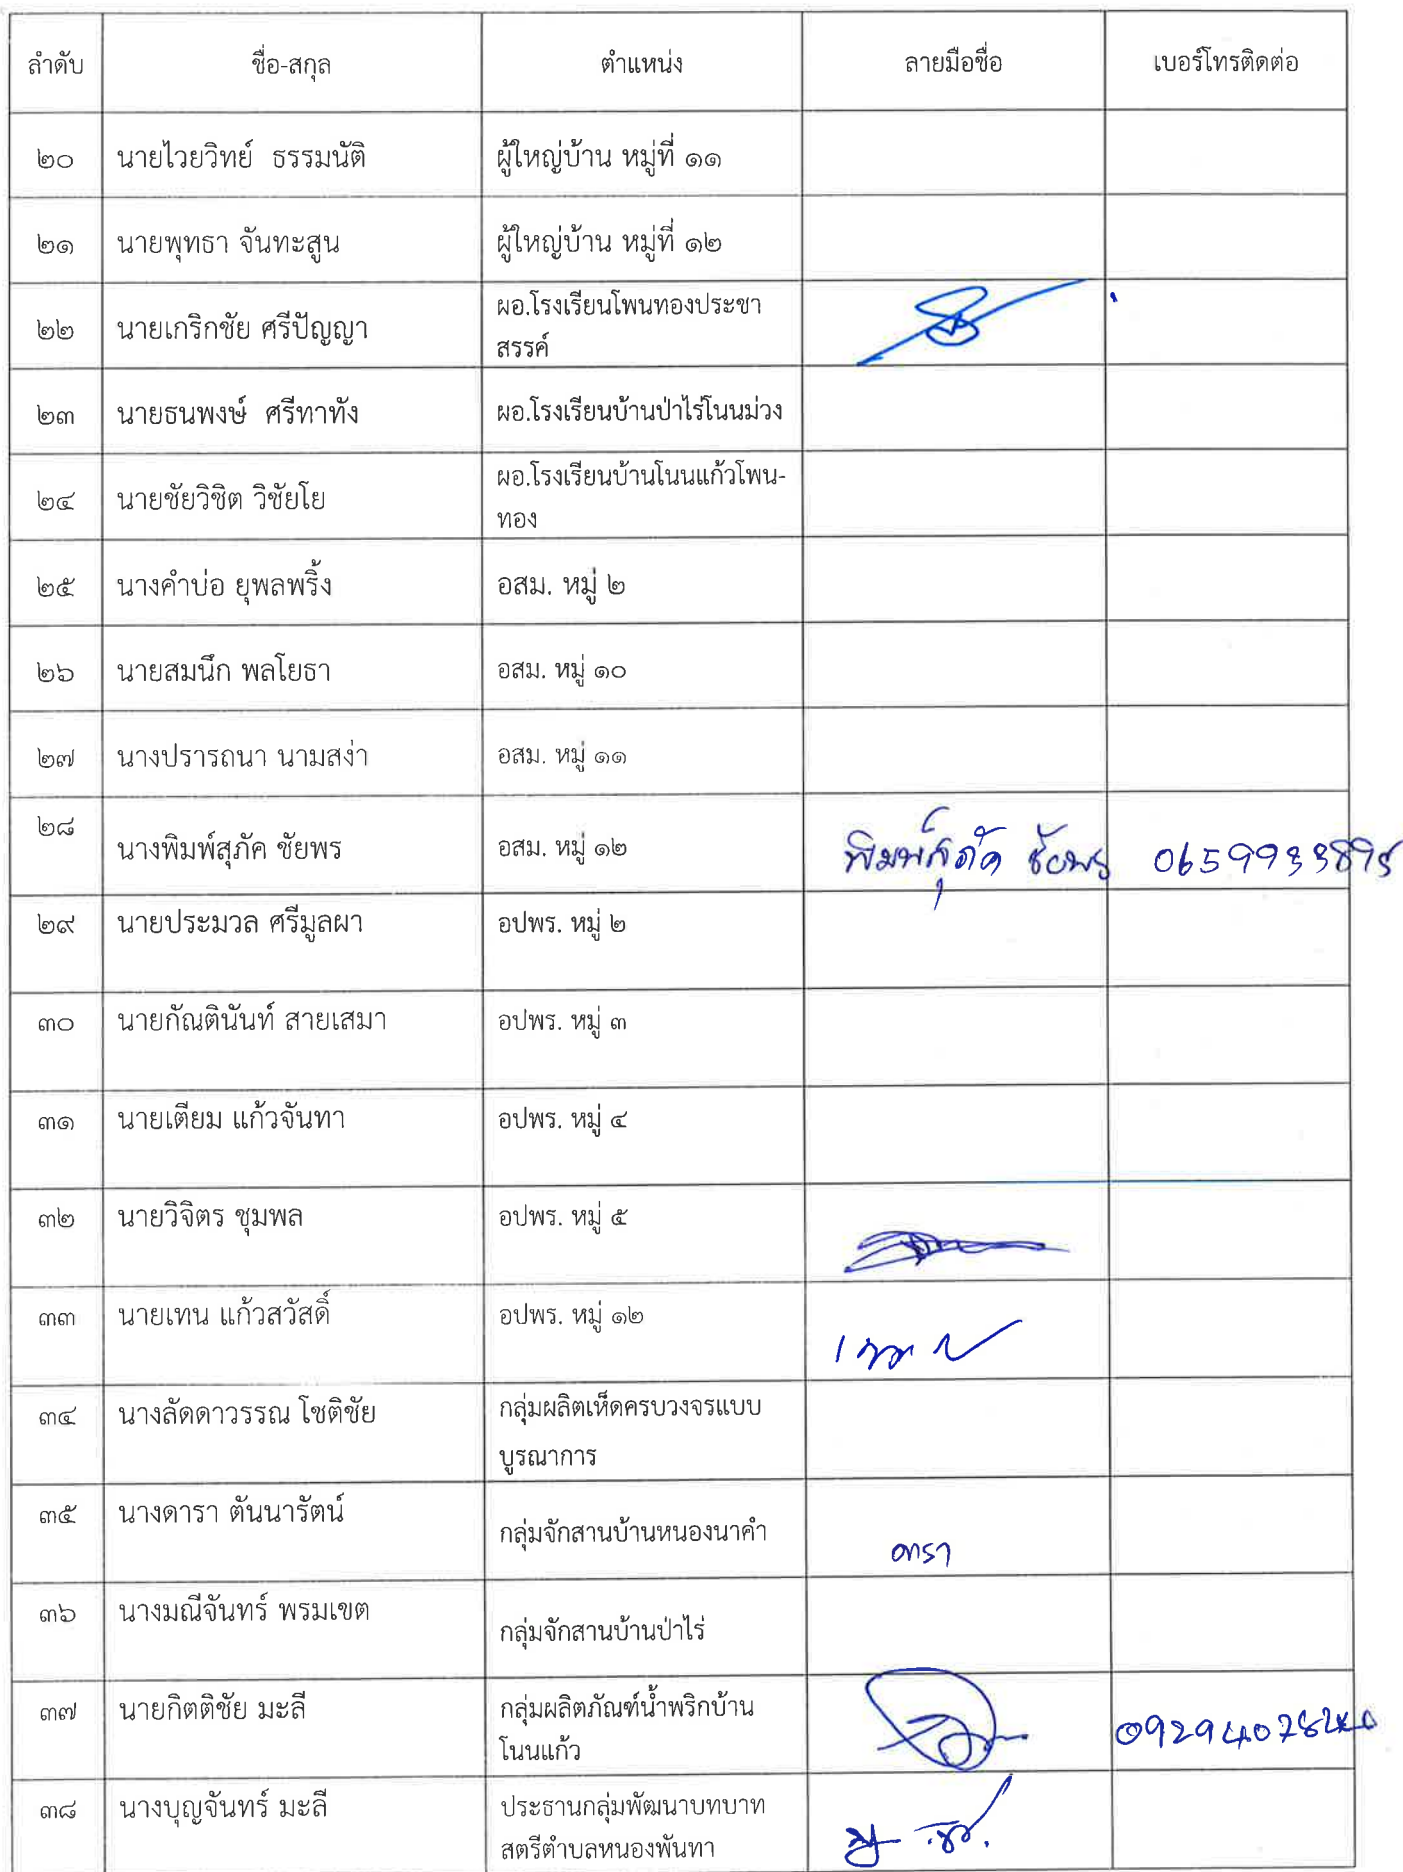 ลำดับ ชื่อ-สกุล ตำแหน่ง ลายมือชื่อ เบอร์โทรติดต่อ
๒๐ นายไวยวิทย์ ธรรมนัติ ผู้ใหญ่บ้าน หมู่ที่ ๑๑
๒๑ นายพุทธา จันทะสูน ผู้ใหญ่บ้าน หมู่ที่ ๑๒
๒๒ นายเกริกชัย ศรีปัญญา ผอ.โรงเรียนโพนทองประชา
สรรค์
๒๓ นายธนพงษ์ ศรีทาทัง ผอ.โรงเรียนบ้านป่าไร่โนนม่วง
๒๔ นายชัยวิชิต วิชัยโย ผอ.โรงเรียนบ้านโนนแก้วโพน-
ทอง
๒๕ นางคำบ่อ ยุพลพริ้ง อสม. หมู่ ๒
๒๖ นายสมนึก พลโยธา อสม. หมู่ ๑๐
๒๗ นางปรารถนา นามสง่า อสม. หมู่ ๑๑
๒๘ นางพิมพ์สุภัค ชัยพร อสม. หมู่ ๑๒ พิมพ์สุภัค ชัยพร
๒๙ นายประมวล ศรีมูลผา อปพร. หมู่ ๒
๓๐ นายกัณตินันท์ สายเสมา อปพร. หมู่ ๓
๓๑ นายเตียม แก้วจันทา อปพร. หมู่ ๔
๓๒ นายวิจิตร ชุมพล อปพร. หมู่ ๕
๓๓ นายเทน แก้วสวัสดิ์ อปพร. หมู่ ๑๒
๓๔ นางลัดดาวรรณ โชติชัย กลุ่มผลิตเห็ดครบวงจรแบบ
บูรณาการ
๓๕ นางดารา ตันนารัตน์ กลุ่มจักสานบ้านหนองนาคำ ดารา
๓๖ นางมณีจันทร์ พรมเขต กลุ่มจักสานบ้านป่าไร่
๓๗ นายกิตติชัย มะลี กลุ่มผลิตภัณฑ์น้ำพริกบ้าน
โนนแก้ว
๓๘ นางบุญจันทร์ มะลี ประธานกลุ่มพัฒนาบทบาท
สตรีตำบลหนองพันทา